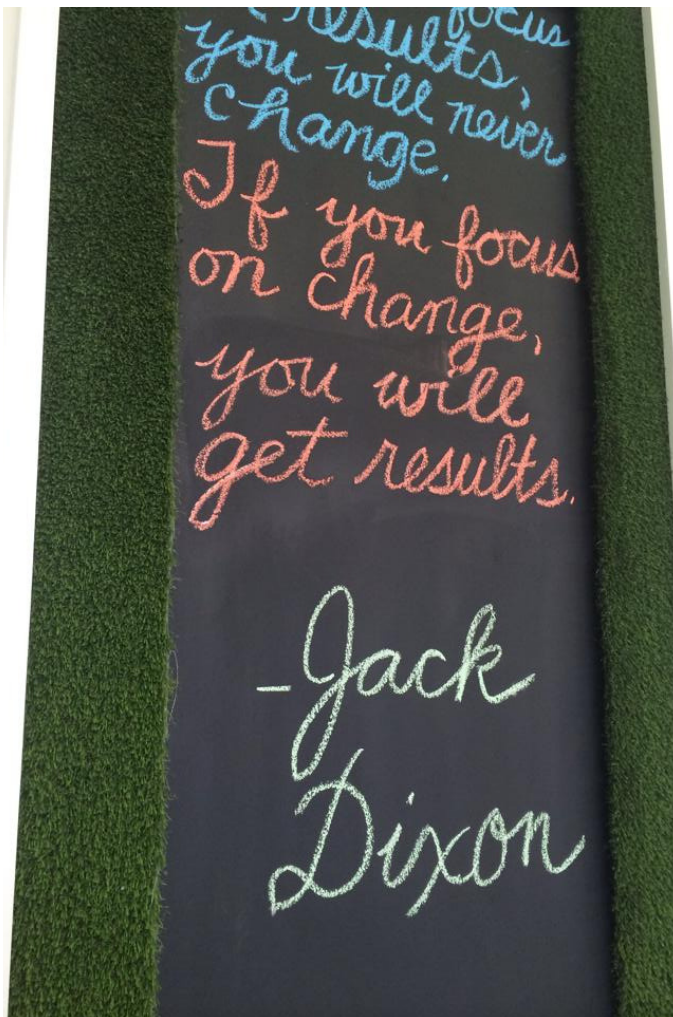 focus
results,
you will never
change.
If you focus
on change,
you will
get results.
-Jack
Dixon